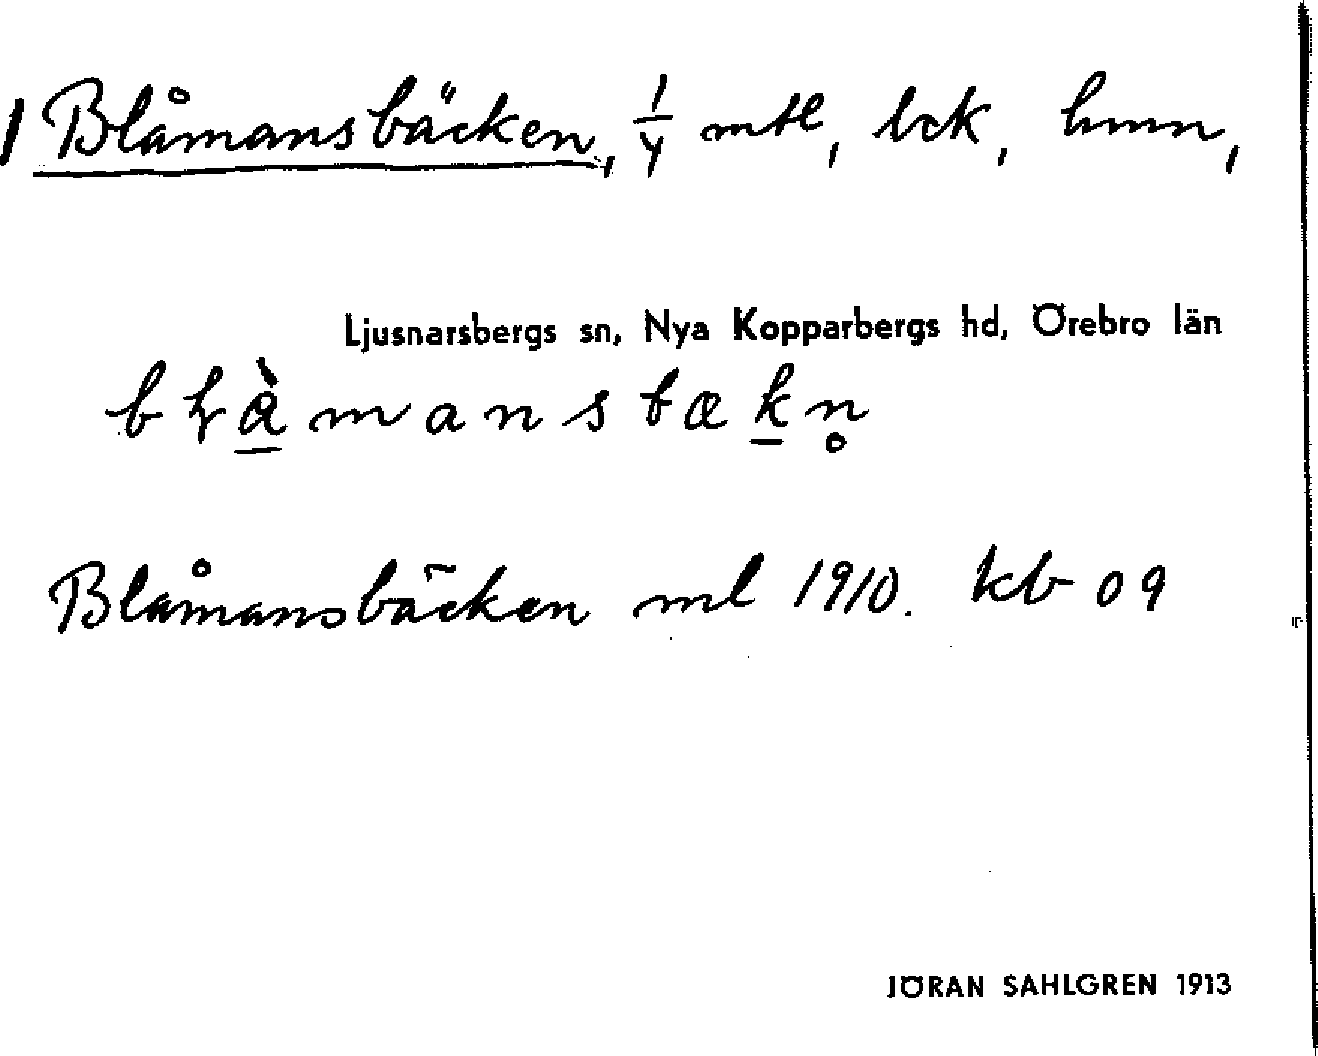 Blåmansbäcken, 1/4 mtl, bck, hmn,
Ljusnarsbergs sn, Nya Kopparbergs hd, Örebro län
Blåmansbäcken ml 1910. kb 09
JÖRAN SAHLGREN 1913